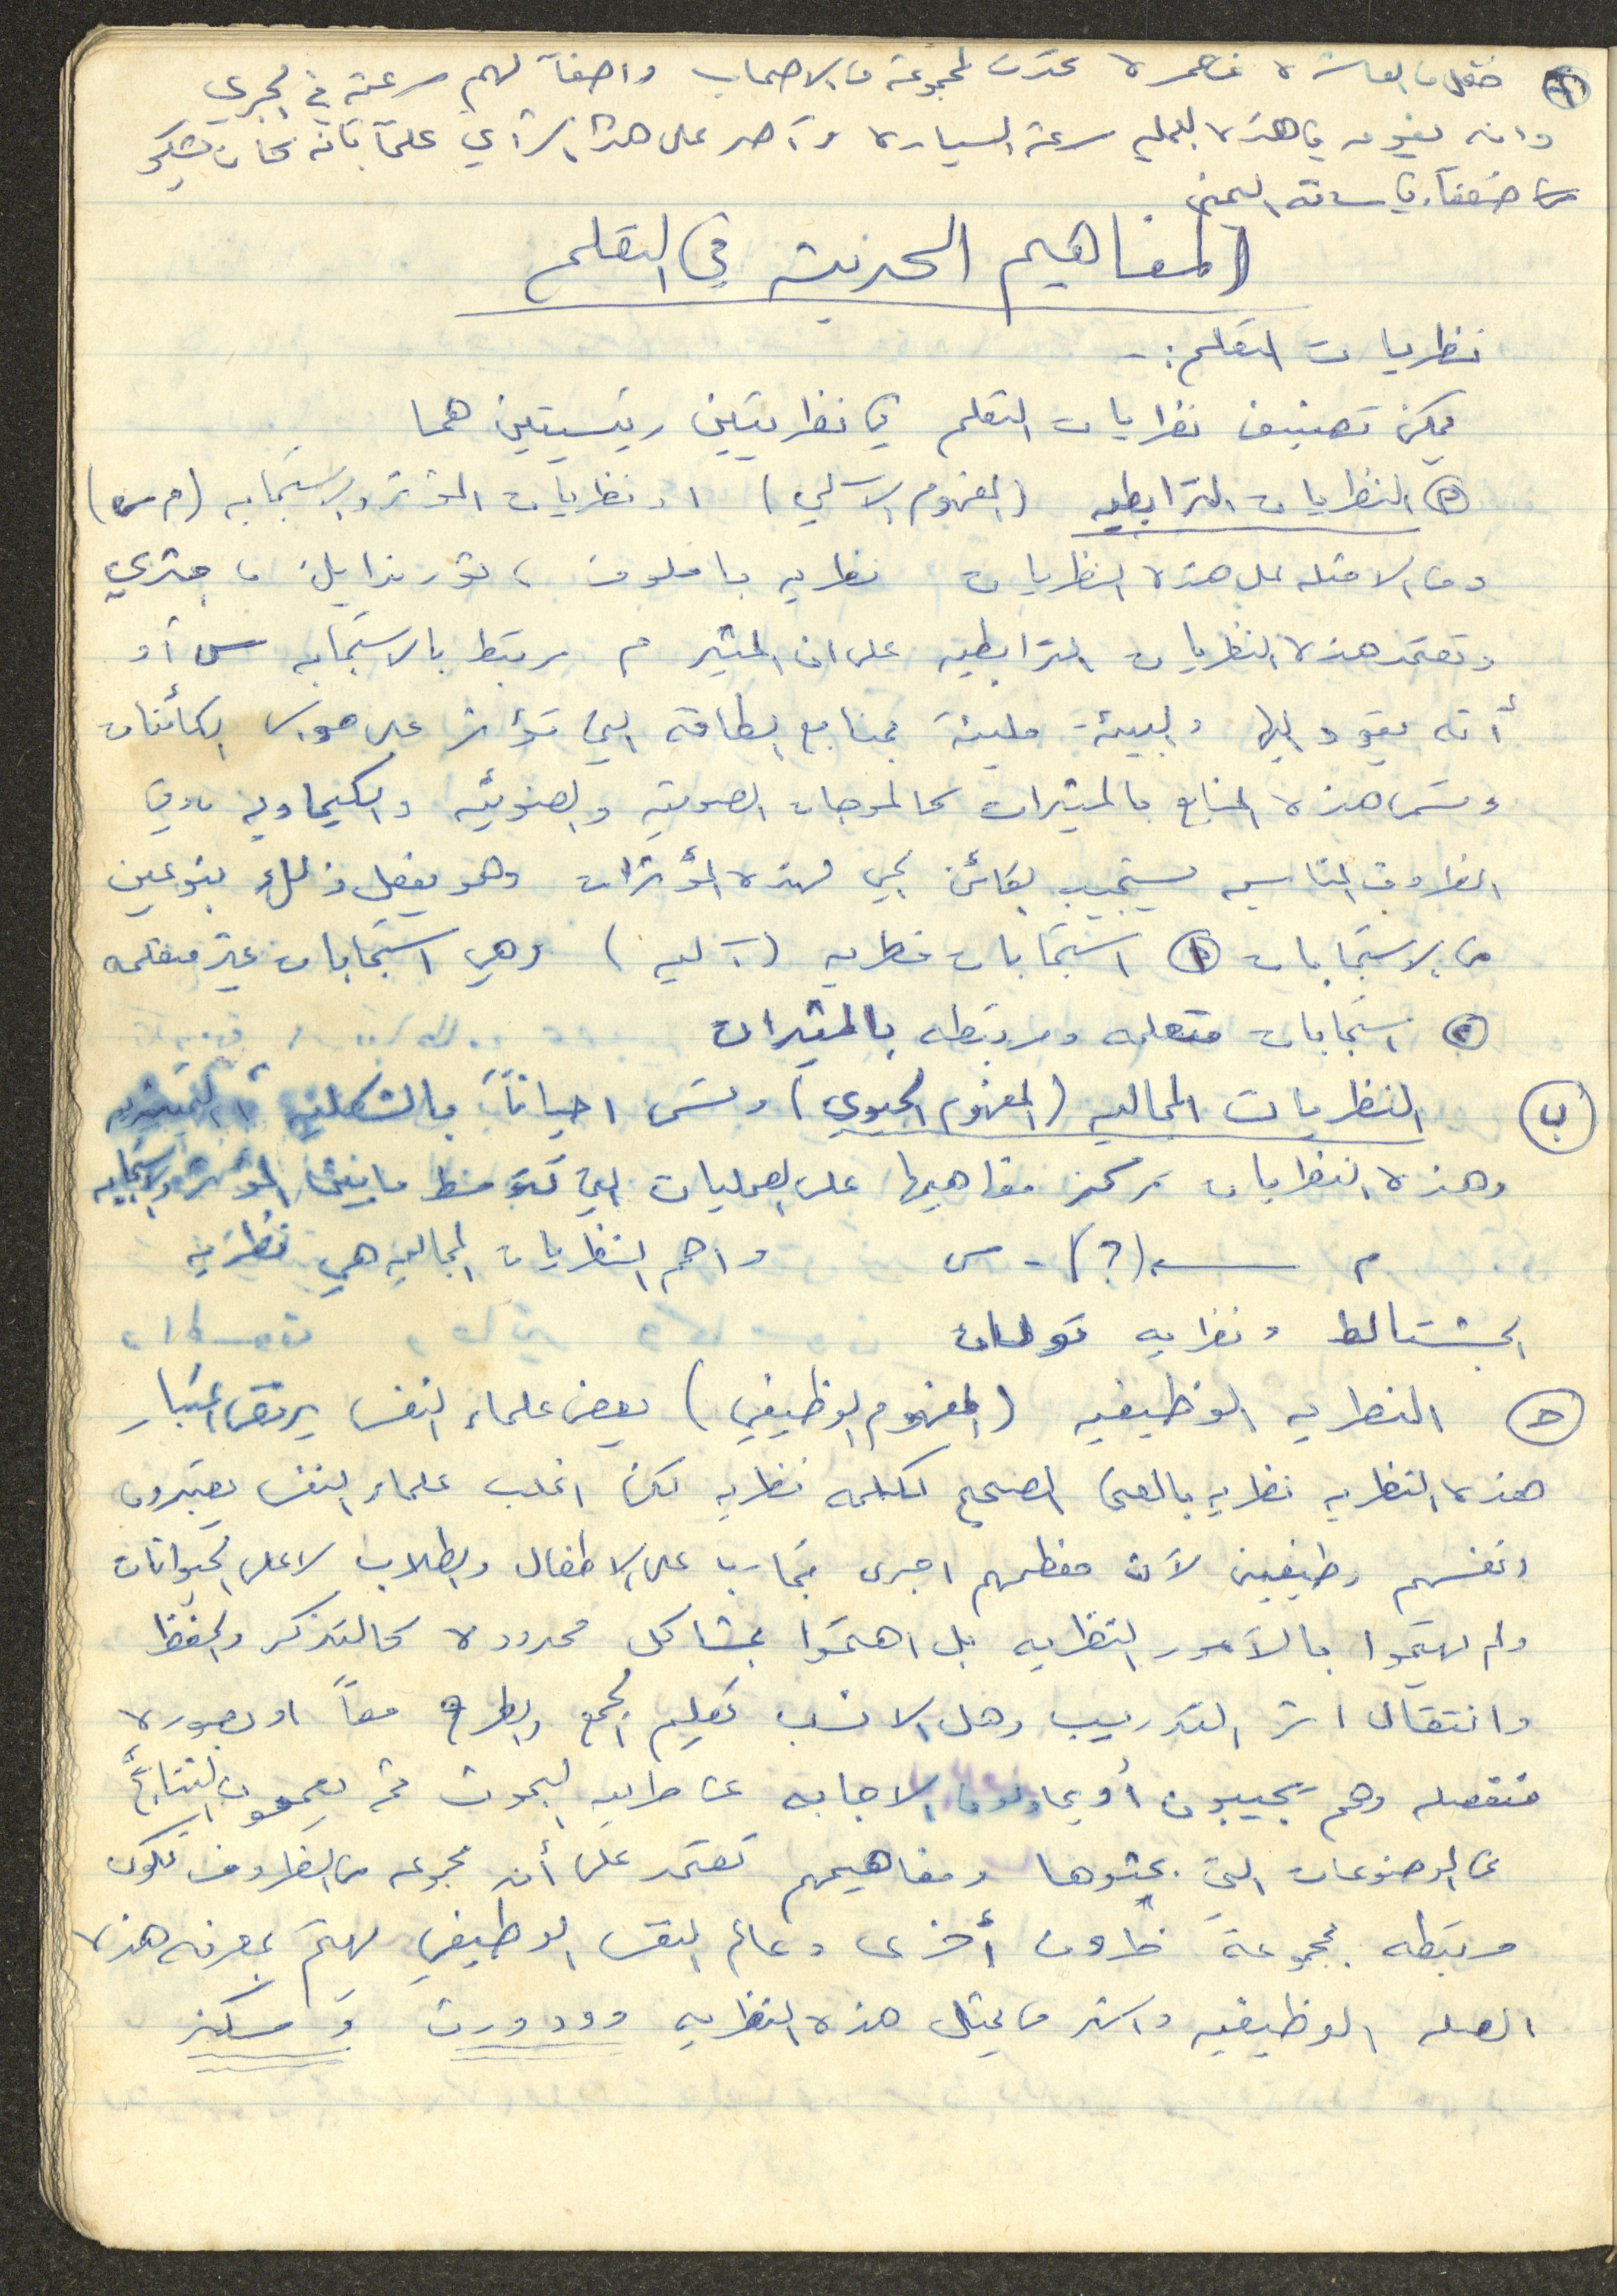 ٣ طفل في العاشرة من عمره تحدث لمجموعة من الاصحاب واصفاً لهم سرعته في الجري
وانه يفوق في هذه العمليه سرعة السيارة وأصر على هذا الرأي علماً بأنه كان يشكو
من ضعفاً في ساقه اليمنى
المفاهيم الحديثة في التعلم
نظريات التعلم :-
يمكن تصنيف نظريات التعلم في نظريتين رئيسيتين هما
أ النظريات الترابطيه (المفهوم الآلي) او نظريات المؤثر والاستجابه (م س)
ومن الامثله على هذه النظريات نظريه بافلوف ، ثورندايك ، جثري
وتعتمد هذه النظريات الترابطيه على ان المثير م يرتبط بالاستجابه س أو
أنه يقود اليها والبيئة مليئة بمنابع الطاقة التي تؤثر على حواس الكائنات
وتسمى هذه المنابع بالمثيرات كالموجات الصوتية والضوئيه والكيماويه وفي
الظروف المناسبه يستجيب الكائن الحي لهذه المؤثرات وهو يفعل ذلك بنوعين
من الاستجابات ١ استجابات فطريه (آليه) وهي استجابات غير متعلمه
٢ استجابات متعلمه ومرتبطه بالمثيرات
ب النظريات المجاليه (المفهوم الحيوي) وتسمى احياناً بالشكليه
وهذه النظريات تركز مفاهيمها على العمليات التي تتوسط ما بين المؤثر والاستجابه
م ــــ (؟) - س واهم النظريات المجاليه هي نظريه
الجشتالط ونظريه تولمان
ج النظريه الوظيفيه (المفهوم الوظيفي) بعض علماء النفس يرفض اعتبار
هذه النظريه نظريه بالمعنى الصحيح لكلمه نظريه لكن اغلب علماء النفس يعتبرون
انفسهم وظيفيين لأن معظمهم اجرى تجاربا على الاطفال والطلاب لا على الحيوانات
ولم يهتموا بالأمور النظريه بل اهتموا بمشاكل محدوده كالتذكر والحفظ
وانتقال اثر التدريب وهل الانسب تعليم الجمع والطرح معاً او بصوره
منفصله وهم يجيبون أو يحاولون الاجابه عن طريق البحوث ثم يعممون النتائج
عن الموضوعات التي بحثوها ومفاهيمهم تعتمد على أن مجموعه من الظروف تكون
مرتبطه بمجموعة ظروف أخرى وعالم النفس الوظيفي يهتم بمعرفه هذه
الصله الوظيفيه واشهر من يمثل هذه النظريه وودورث و سكنر